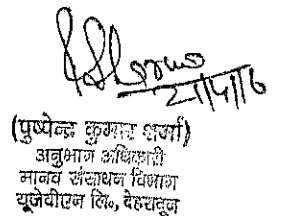 (पुष्पेन्द्र कुमार शर्मा)
अनुभाग अधिकारी
मानव संसाधन विभाग
यूजेवीएन लि०, देहरादून